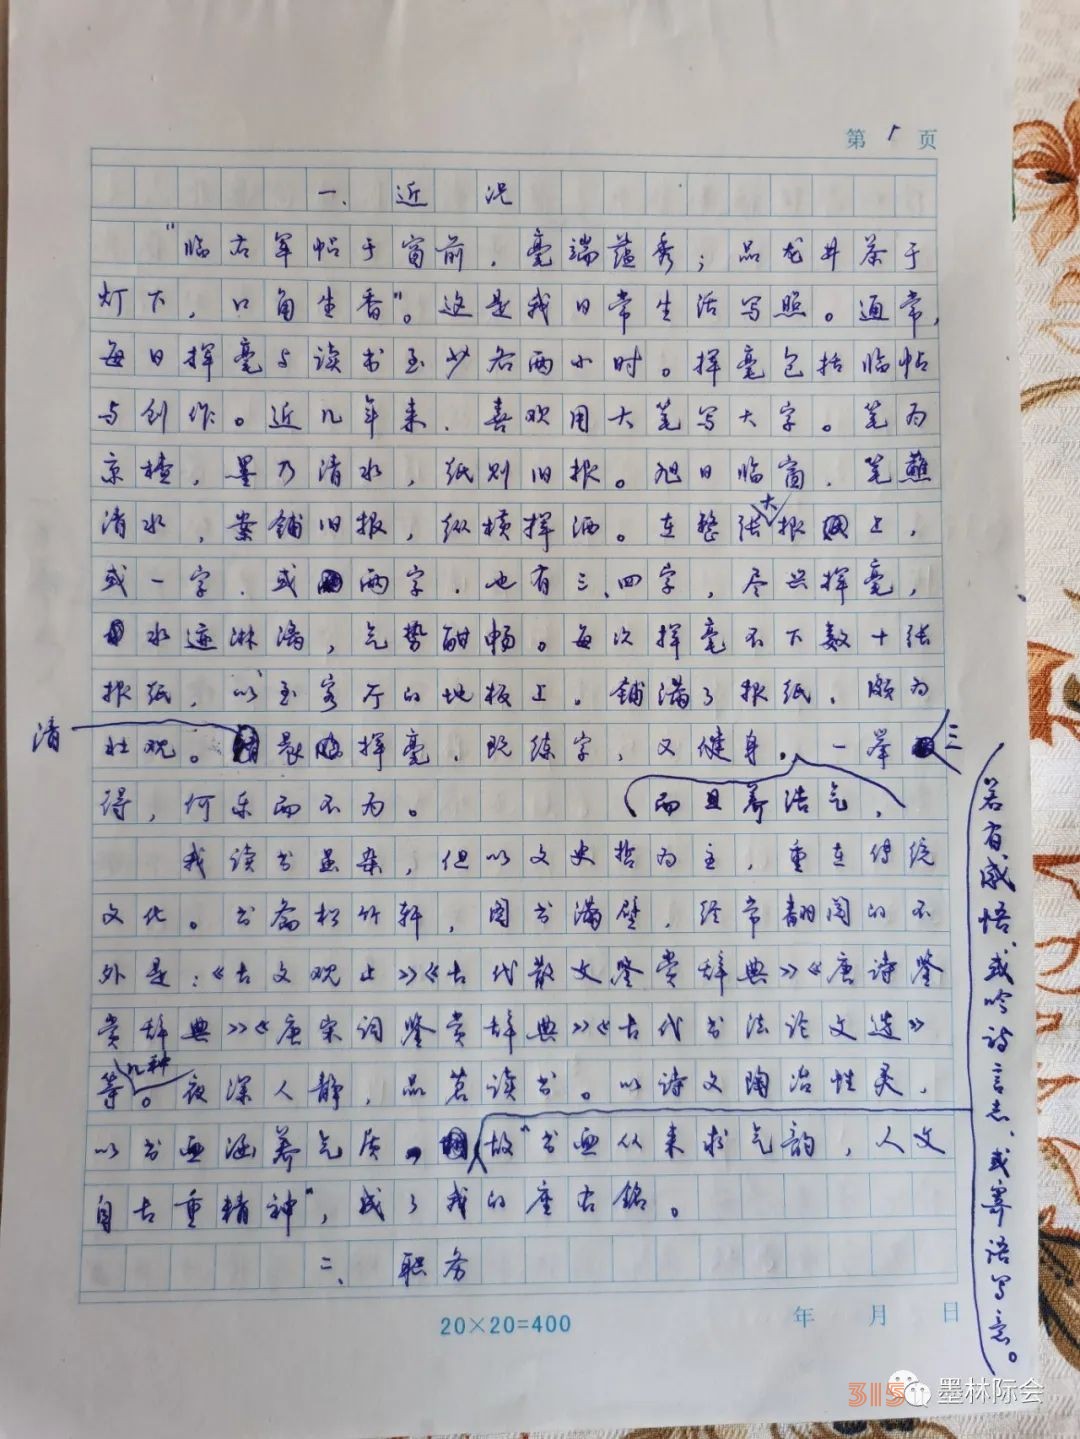 第1页
一、近况
“临右军帖于窗前，毫端蕴秀；品龙井茶于
灯下，口角生香”。这是我日常生活写照。通常，
每日挥毫与读书至少各两小时。挥毫包括临帖
与创作。近几年来，喜欢用大笔写大字。笔为
京楂，墨乃清水，纸则旧报。旭日临窗，笔蘸
清水，案铺旧报，纵横挥洒。在整张大报上，
或一字、或两字，也有三、四字，尽兴挥毫，
水迹淋漓，气势酣畅。每次挥毫不下数十张
报纸，以至客厅的地板上，铺满了报纸，颇为
壮观。清晨挥毫，既练字，又健身，一举三
得，何乐而不为。
而且养浩气，
我读书虽杂，但以文史哲为主，重在传统
文化。书斋松竹轩，图书满壁，经常翻阅的不
外是：《古文观止》《古代散文鉴赏辞典》《唐诗鉴
赏辞典》《唐宋词鉴赏辞典》《古代书法论文选》
等几种。夜深人静，品茗读书。以诗文陶冶性灵，
以书画涵养气质。故“书画从来求气韵，人文
自古重精神”，成了我的座右铭。
二、职务
若有感悟、或吟诗言志、或寄语写意。
20×20=400
年 月 日
315
墨林际会